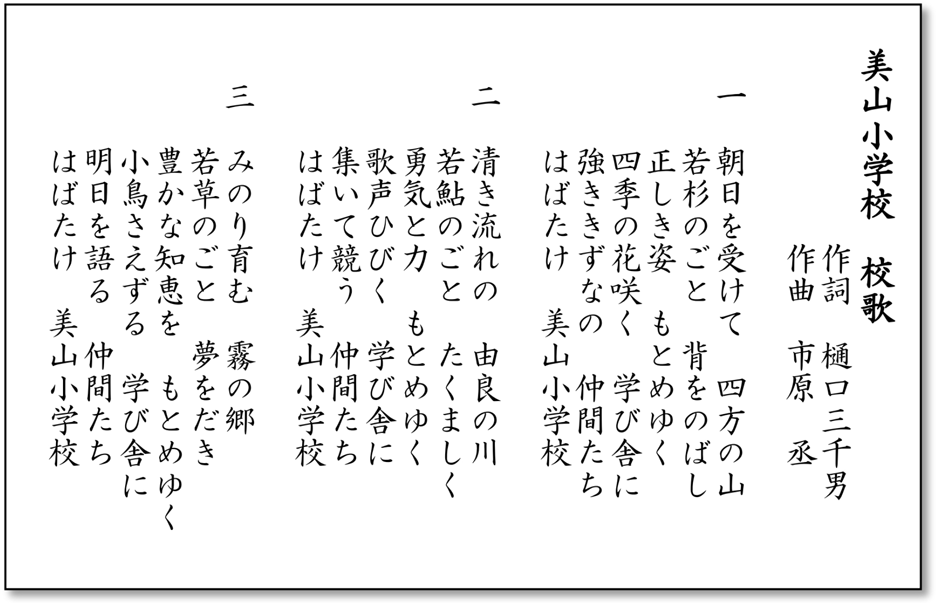 美山小学校　校歌
作詞　樋口三千男
作曲　市原　丞
一　朝日を受けて　四方の山
若杉のごと　背をのばし
正しき姿　もとめゆく
四季の花咲く　学び舎に
強ききずなの　仲間たち
はばたけ　美山小学校
二　清き流れの　由良の川
若鮎のごと　たくましく
勇気と力　もとめゆく
歌声ひびく　学び舎に
集いて競う　仲間たち
はばたけ　美山小学校
三　みのり育む　霧の郷
若草のごと　夢をだき
豊かな知恵を　もとめゆく
小鳥さえずる　学び舎に
明日を語る　仲間たち
はばたけ　美山小学校